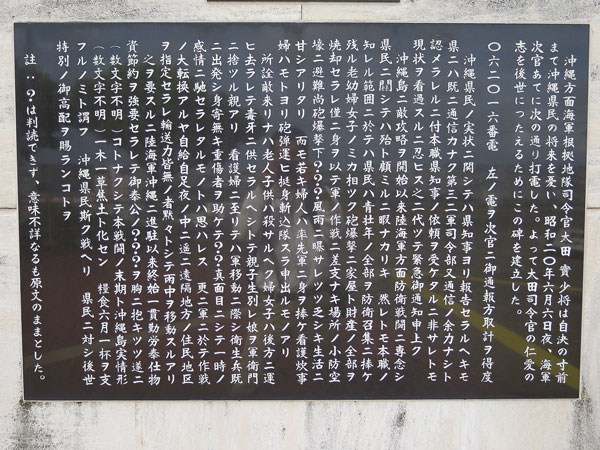 沖縄方面海軍根拠地隊司令官大田 實少将は自決の寸前
まで沖縄県民の将来を憂い、昭和二〇年六月六日夜、海軍
次官あてに次の通り打電した。よって大田司令官の仁愛の
志を後世につたえるためにこの碑を建立した。
〇六二〇一六番電 左ノ電ヲ次官ニ御通報方取計ヲ得度
沖縄県民ノ実状ニ関シテハ県知事ヨリ報告セラルヘキモ
県ニハ既ニ通信力ナク第三二軍司令部又通信ノ余力ナシト
認メラルルニ付本職県知事ノ依頼ヲ受ケタルニ非サレトモ
現状ヲ看過スルニ忍ヒス之ニ代ツテ緊急御通知申上ク
沖縄島ニ敵攻略ヲ開始以来陸海軍方面防衛戦闘ニ専念シ
県民ニ関シテハ殆ト顧ミルニ暇ナカリキ 然レトモ本職ノ
知レル範囲ニ於テハ県民ハ青壮年ノ全部ヲ防衛召集ニ捧ケ
残ル老幼婦女子ノミカ相ツク砲爆撃ニ家屋ト財産ノ全部ヲ
焼却セラレ僅ニ身ヲ以テ軍ノ作戦ニ差支ナキ場所ノ小防空
壕ニ避難尚砲爆撃下???風雨ニ曝サレツツ乏シキ生活ニ
甘シアリタリ 而モ若キ婦人ハ率先軍ニ身ヲ捧ケ看護炊事
婦ハモトヨリ砲弾運ヒ挺身斬込隊スラ申出ルモノアリ
所詮敵来リナハ老人子供ハ殺サルヘク婦女子ハ後方ニ運
ヒ去ラレテ毒牙ニ供セラルヘシトテ親子生別レ娘ヲ軍衛門
ニ捨ツル親アリ 看護婦ニ至リテハ軍移動ニ際シ衛生兵既
ニ出発シ身寄無キ重傷者ヲ助ケテ??真面目ニシテ一時ノ
感情ニ馳セラレタルモノトハ思ハレス 更ニ軍ニ於テ作戦
ノ大転換アルヤ自給自足夜ノ中ニ遥ニ遠隔地方ノ住民地区
ヲ指定セラレ輸送力皆無ノ者黙々トシテ雨中ヲ移動スルアリ
之ヲ要スルニ陸海軍沖縄ニ進駐以来終始一貫勤労奉仕物
資節約ヲ強要セラレテ御奉公ノ???ヲ胸ニ抱キツツ遂ニ
(数文字不明)コトナクシテ本戦闘ノ末期ト沖縄島実情形
(数文字不明)一木一草焦土ト化セン 糧食六月一杯ヲ支
フルノミト謂フ 沖縄県民斯ク戦ヘリ 県民ニ対シ後世
特別ノ御高配ヲ賜ランコトヲ
註:?は判読できず、意味不詳なるも原文のままとした。